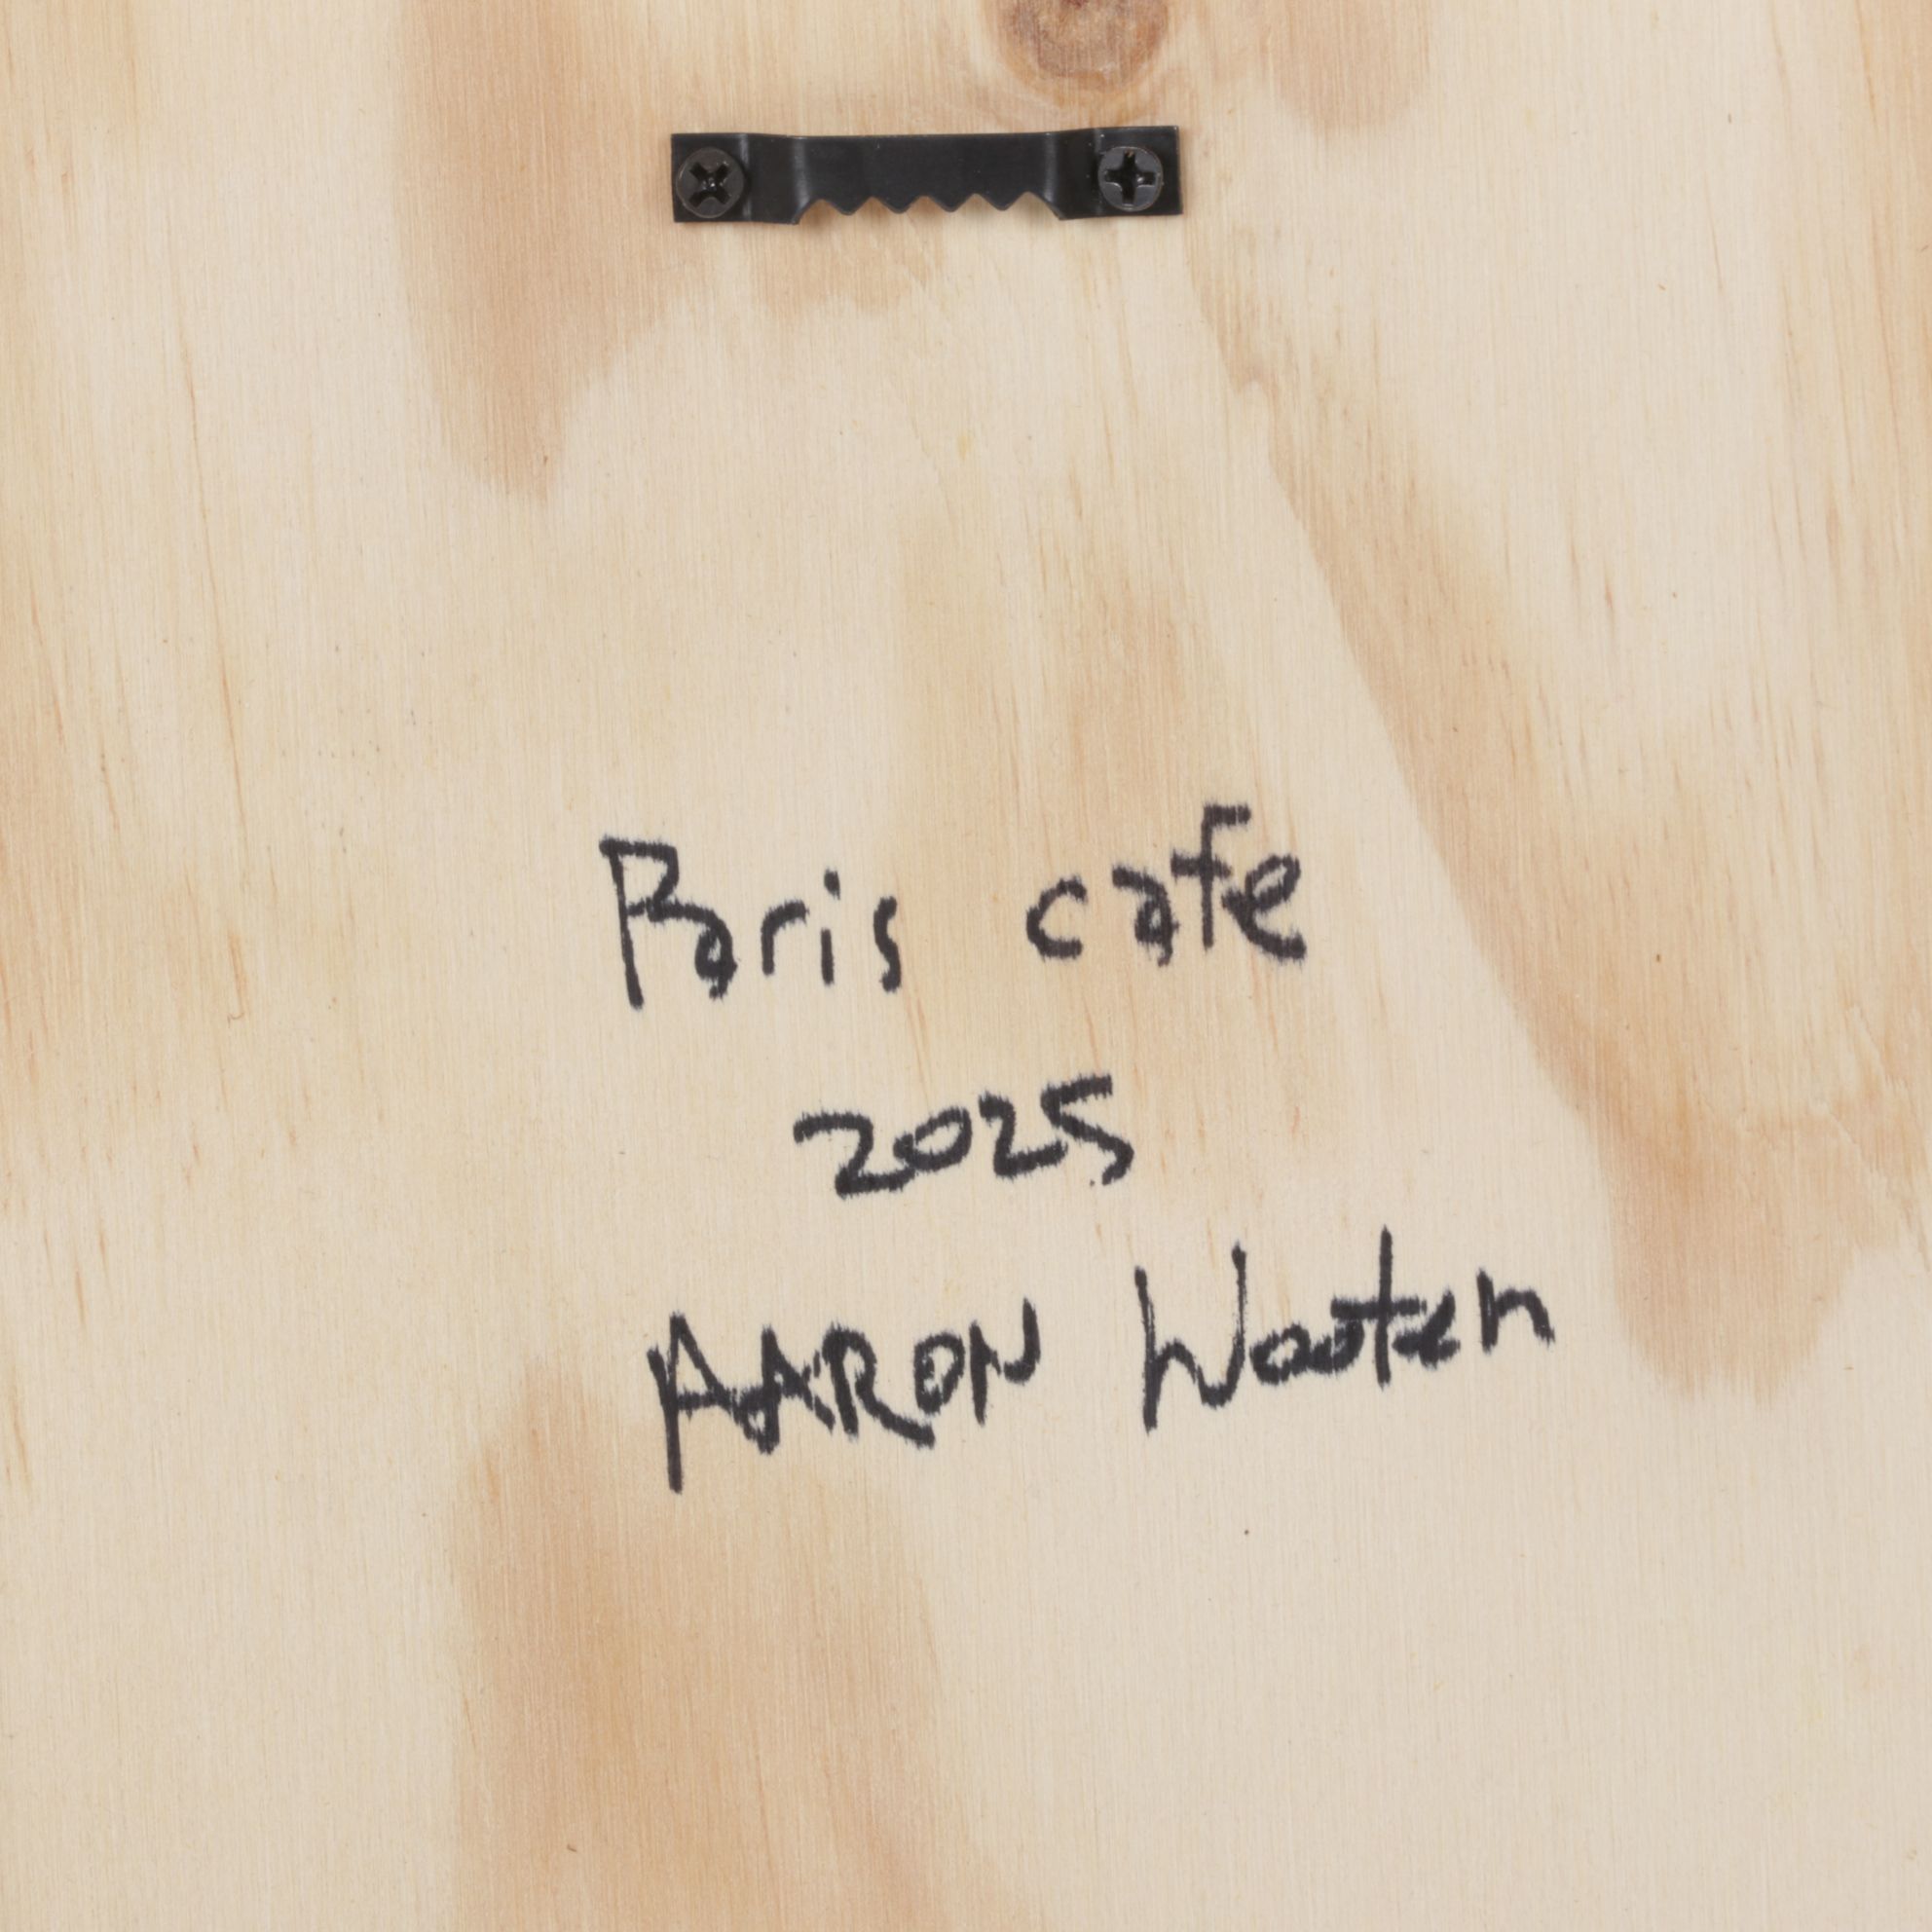 Paris cafe
2025
AARON Wooten